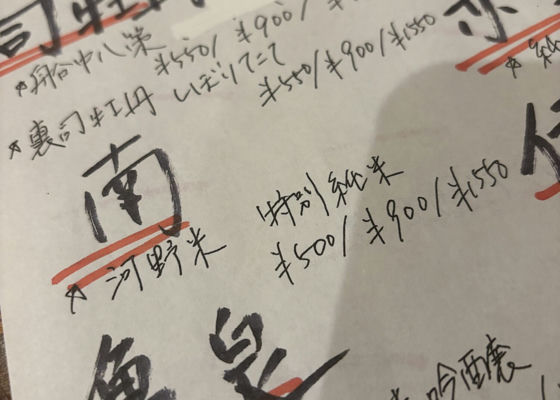 司牡丹
★船中八策 ¥550/¥900/¥
★裏司牡丹 しぼりたて ¥550/¥900/¥1550
南
★河野米 特別純米
¥500/¥900/¥1550
亀泉
吟醸